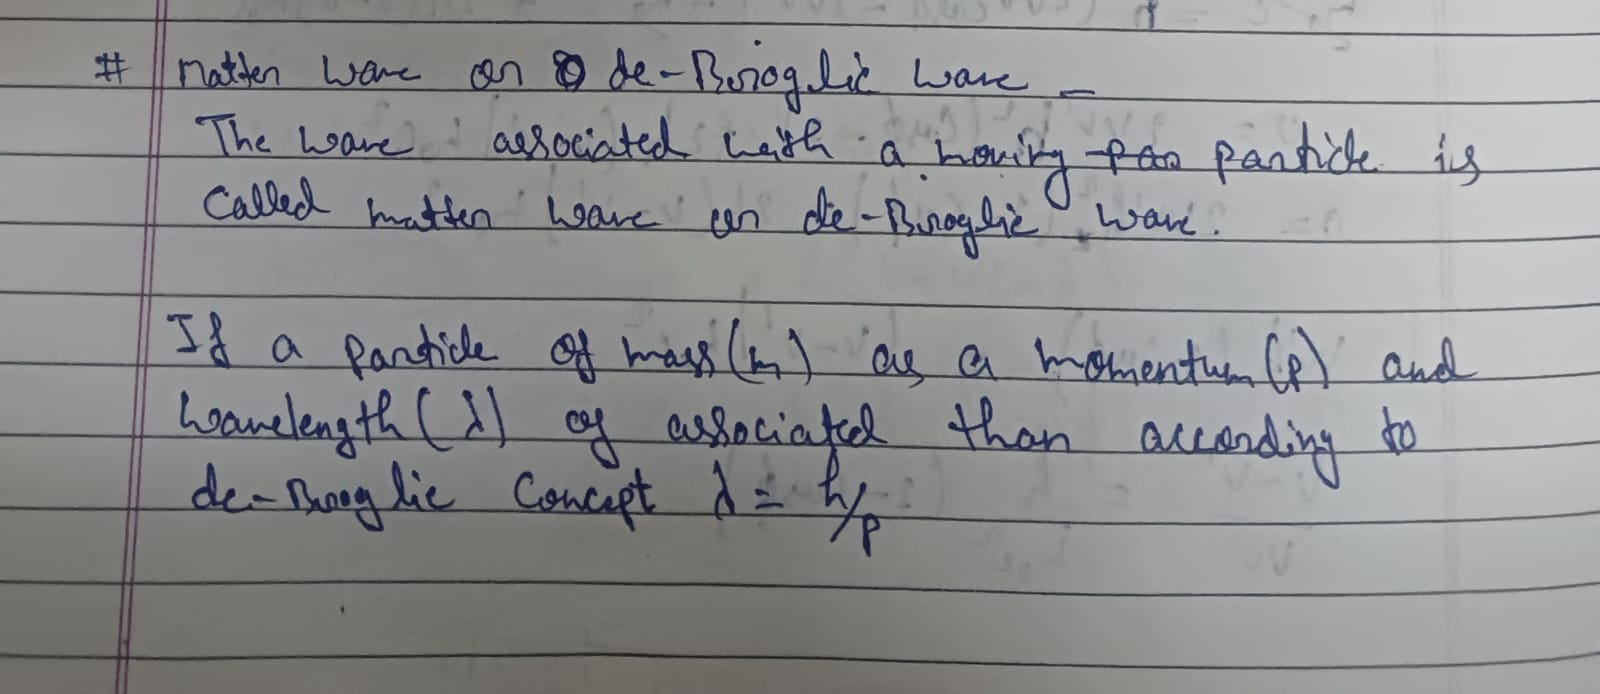 # Matter wave or de-Broglie wave -
The wave associated with a moving particle is
called matter wave or de-Broglie wave.
If a particle of mass (m) as a momentum (p) and
wavelength (λ) of associated than according to
de-Broglie concept λ = h/p